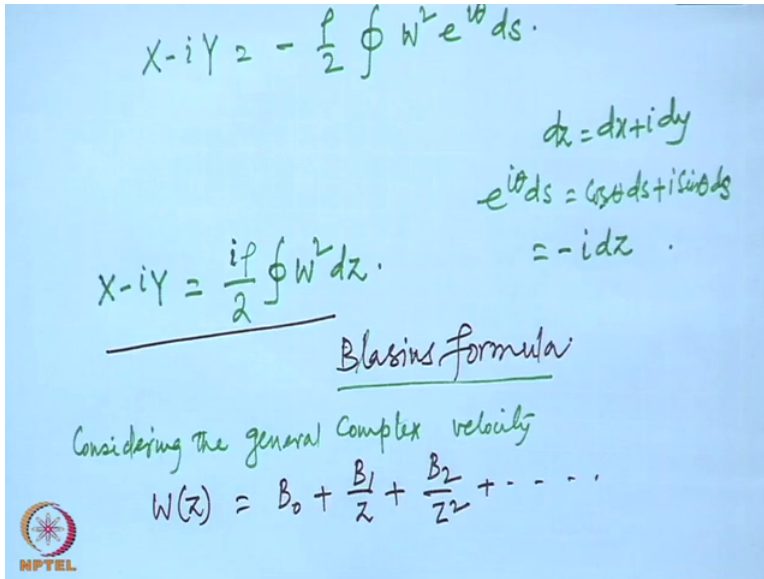 X-iY = - ρ/2 ∮ W² e^{iθ} ds.
dz = dx + i dy
e^{iθ} ds = cosθ ds + i sinθ ds
= -i dz .
X-iY = iρ/2 ∮ W² dz.
Blasius formula
Considering the general Complex velocity
W(z) = B₀ + B₁/z + B₂/z² + - - - -
NPTEL